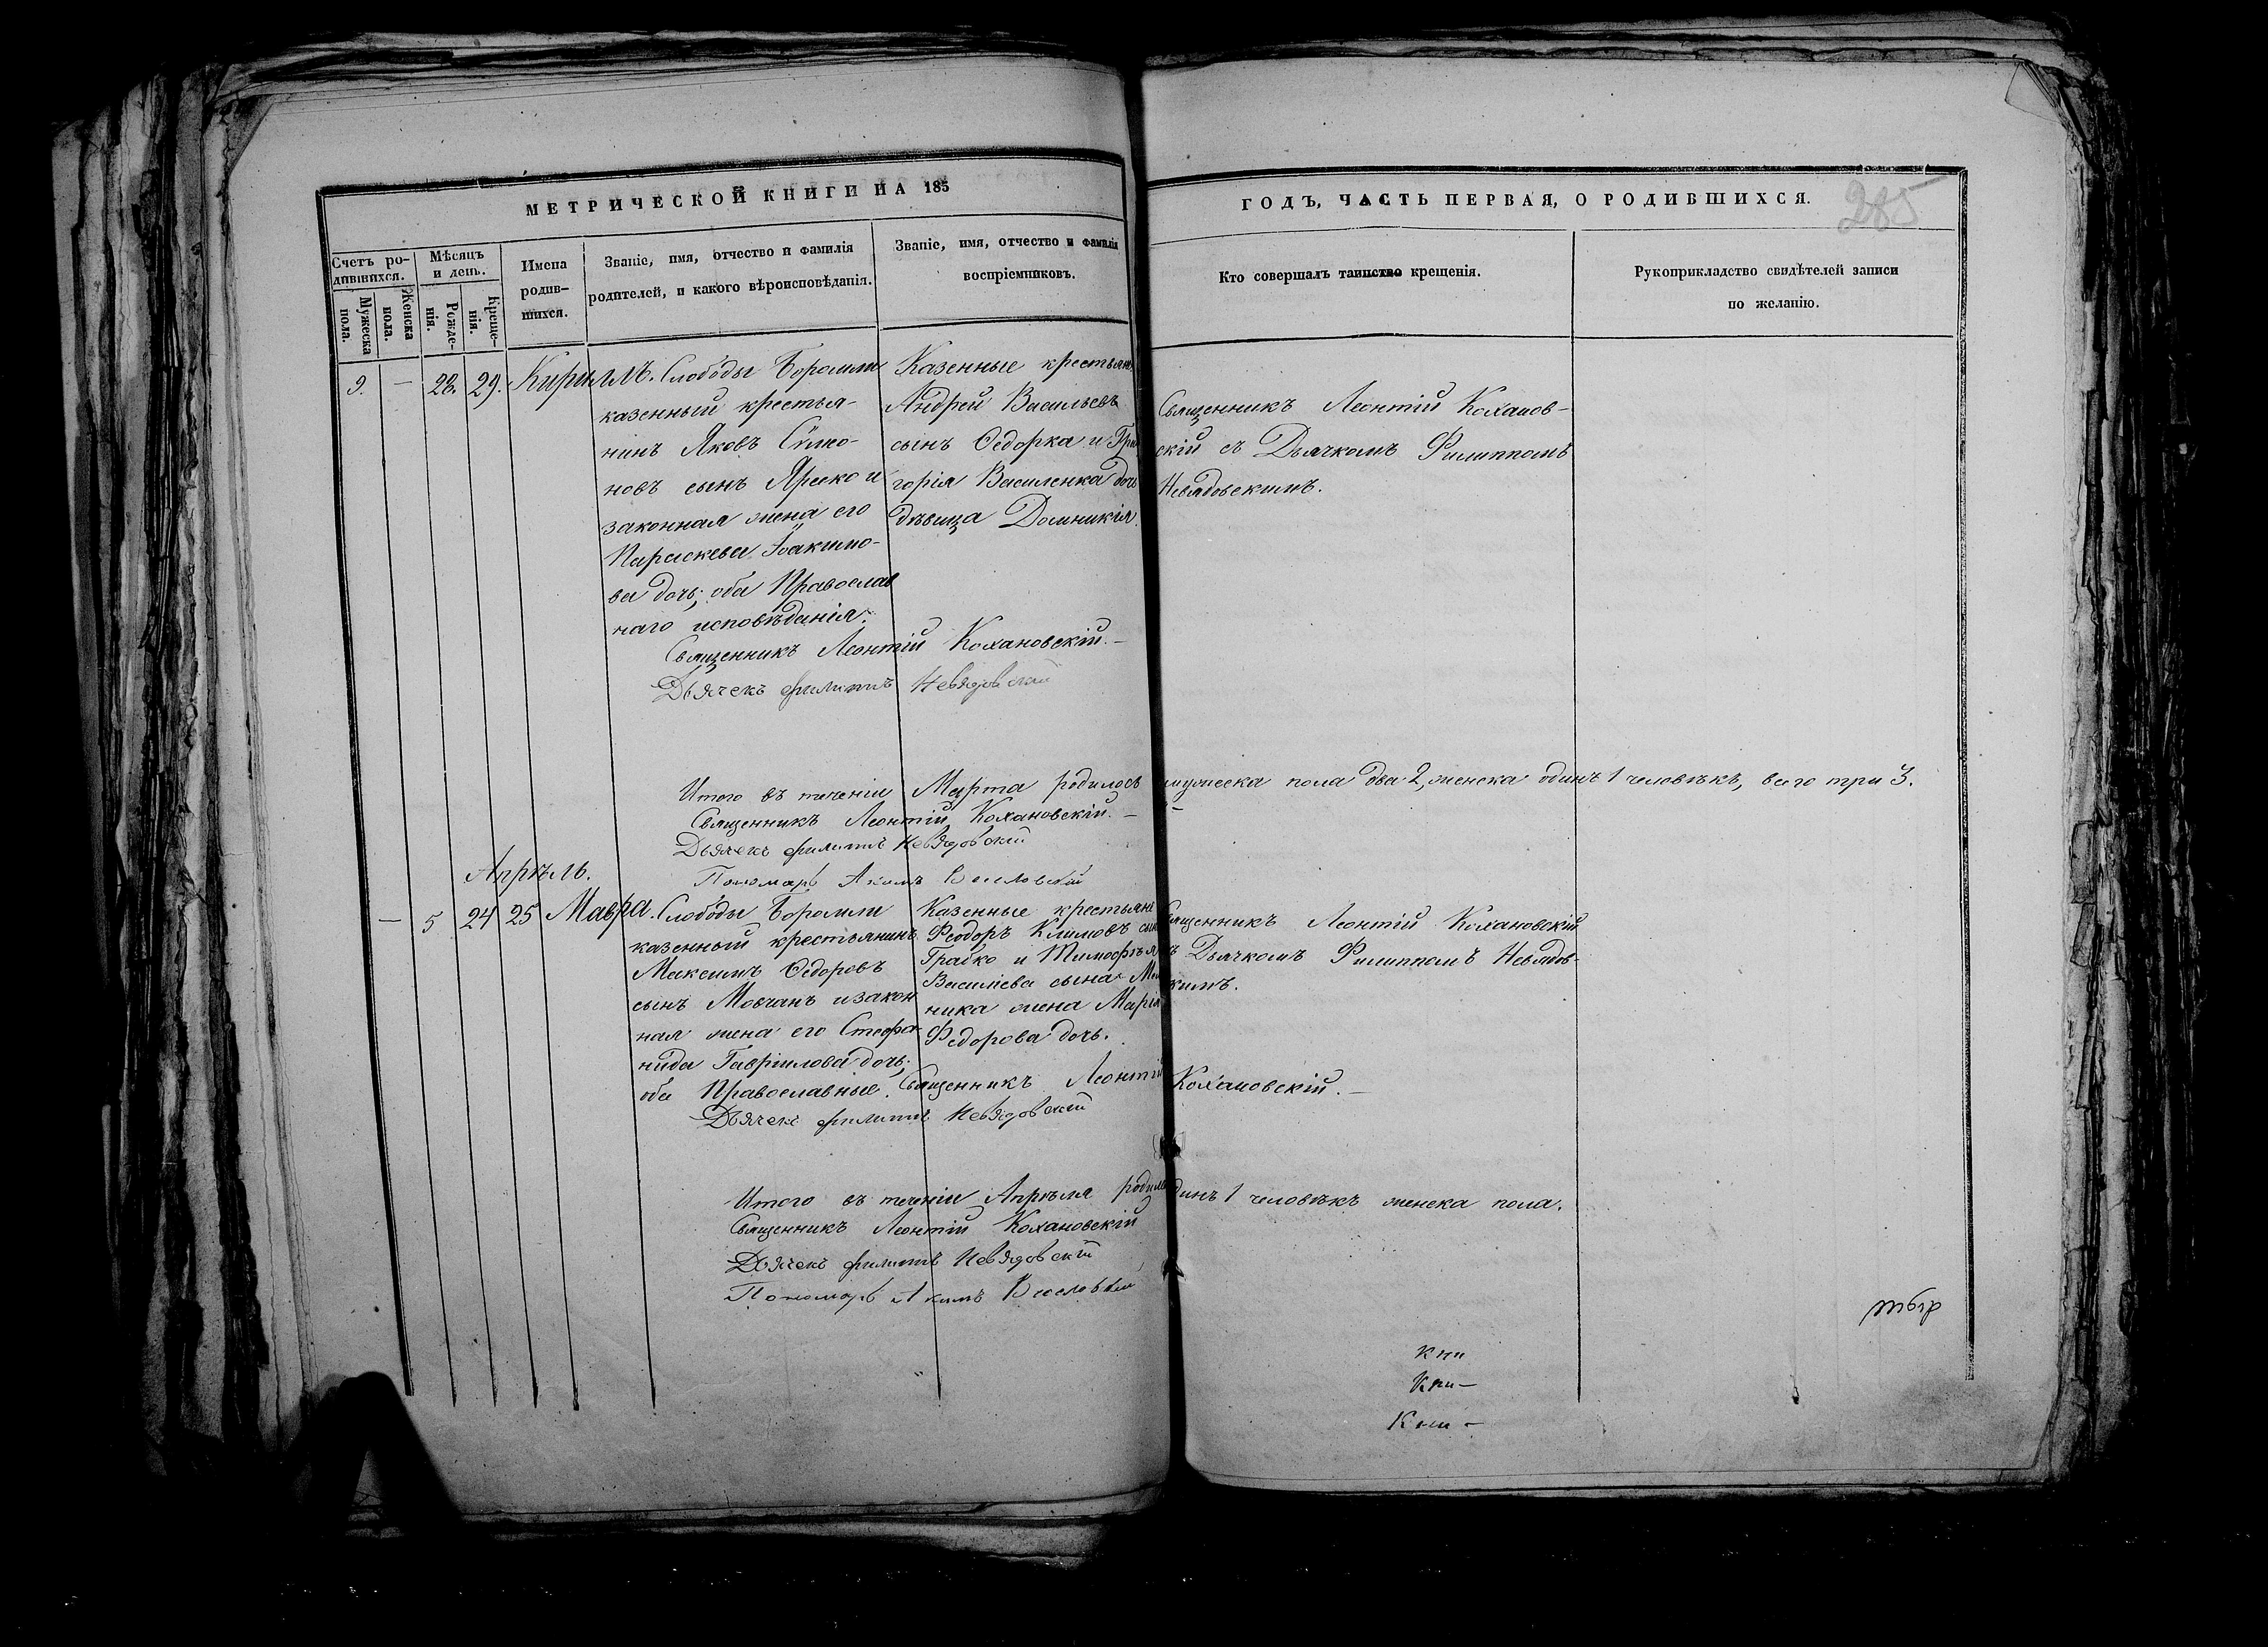 МЕТРИЧЕСКОЙ КНИГИ НА 185
ГОДЪ, ЧАСТЬ ПЕРВАЯ, О РОДИВШИХСЯ.
285
Счетъ ро-
дившихся.
Мужеска
пола.
Женска
пола.
Мѣсяцъ
и день.
Рожде-
нія.
Креще-
нія.
Имена
родив-
шихся.
Званіе, имя, отчество и фамилія
родителей, и какого вѣроисповѣданія.
Званіе, имя, отчество и фамилія
воспріемниковъ.
Кто совершалъ таинство крещенія.
Рукоприкладство свидѣтелей записи
по желанію.
9. — 28. 29. Кириллъ.
Слободы Боромли
казенный крестья-
нинъ Яковъ Симо-
новъ сынъ Яреско и
законная жена его
Параскева Іоакимо-
ва дочь; оба Православ
наго исповѣданія.
Казенные крестьяне
Андрей Васильевъ
сынъ Ѳедорка и Гри
горія Василенка дочь
дѣвица Домникія.
Священникъ Леонтій Коханов-
скій съ Дьячкомъ Филиппомъ
Невядовскимъ.
Священникъ Леонтій Кохановскій. —
Дьячекъ Филиппъ Невядовскій
Итого въ теченіи Марта родилось мужеска пола два 2, женска одинъ 1 человѣкъ, всего три 3.
Священникъ Леонтій Кохановскій. —
Дьячекъ Филиппъ Невядовскій
Пономарь Акимъ
Апрѣль.
— 5 24 25 Мавра.
Слободы Боромли
казенный крестьянинъ
Максимъ Ѳедоровъ
сынъ Мовчанъ и закон
ная жена его Стефа-
нида Гавріилова дочь;
оба Православные.
Казенные крестьяне
Феодоръ Климовъ сынъ
Грабко и Тимофѣя
Василіева сына
ника жена Марія
Федорова дочь.
Священникъ Леонтій Кохановскій
съ Дьячкомъ Филиппомъ Невядов-
скимъ.
Священникъ Леонтій Кохановскій. —
Дьячекъ Филиппъ Невядовскій
Итого въ теченіи Апрѣля родился одинъ 1 человѣкъ женска пола.
Священникъ Леонтій Кохановскій
Дьячекъ Филиппъ Невядовскій
Пономарь Акимъ
кни
Кни —
Кни —